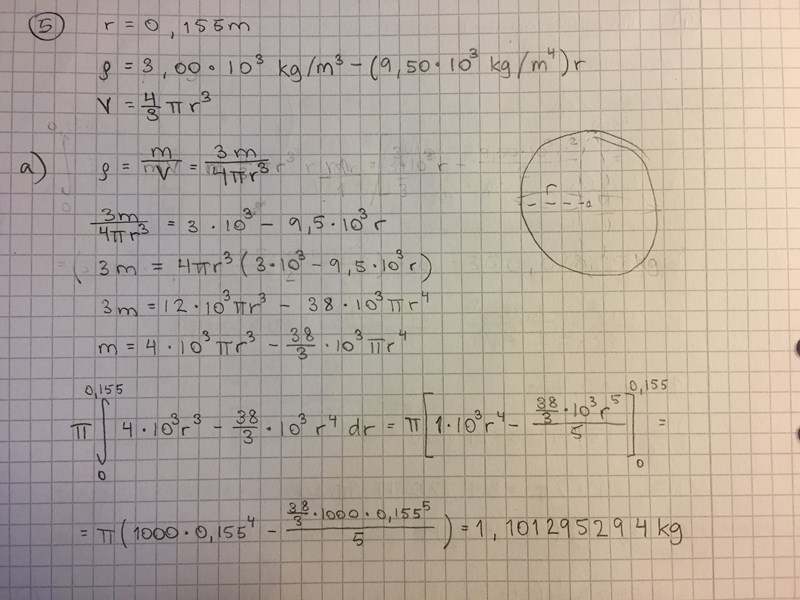 5 r = 0,155m
ρ = 3,00·10³ kg/m³ − (9,50·10³ kg/m⁴)r
V = 4/3 πr³
a) ρ = m/V = 3m/4πr³
3m/4πr³ = 3·10³ − 9,5·10³r
r
3m = 4πr³(3·10³ − 9,5·10³r)
3m = 12·10³πr³ − 38·10³πr⁴
m = 4·10³πr³ − 38/3·10³πr⁴
π∫₀^0,155 4·10³r³ − 38/3·10³r⁴ dr = π[1·10³r⁴ − (38/3·10³r⁵)/5]₀^0,155 =
= π(1000·0,155⁴ − (38/3·1000·0,155⁵)/5) = 1,101295294kg